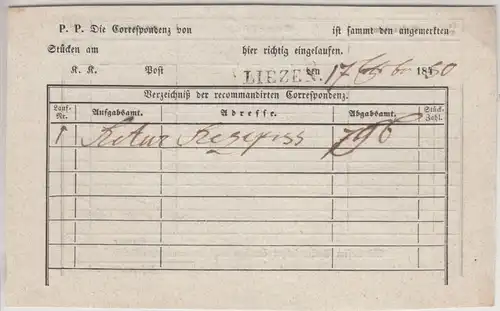 P. P. Die Correspondenz von ist sammt den angemerkten
Stücken am hier richtig eingelaufen.
K. K. Post LIEZEN. den 17 185 60
Verzeichniß der recommandirten Correspondenz.
Lauf-Nr. Aufgabsamt. Adresse. Abgabsamt. Stück-Zahl.
1 Retour Recepiss